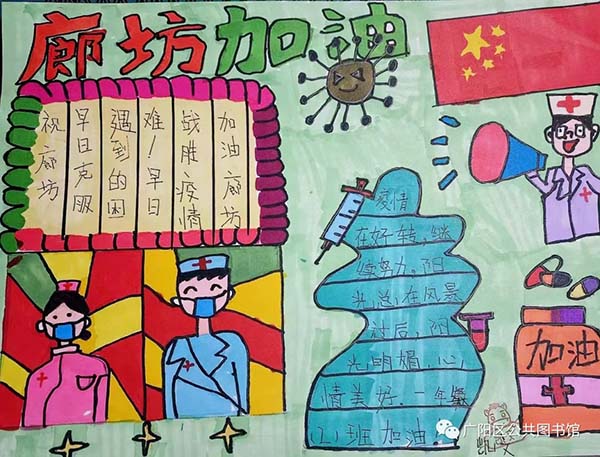 廊坊加油
祝廊坊
早日克服
遇到的困
难！早日
战胜疫情
加油廊坊
疫情
在好转，继
续努力，阳
光总在风景
过后，阳
光明媚，心
情美好.一年级
(2)班加油.
加油
广阳区公共图书馆